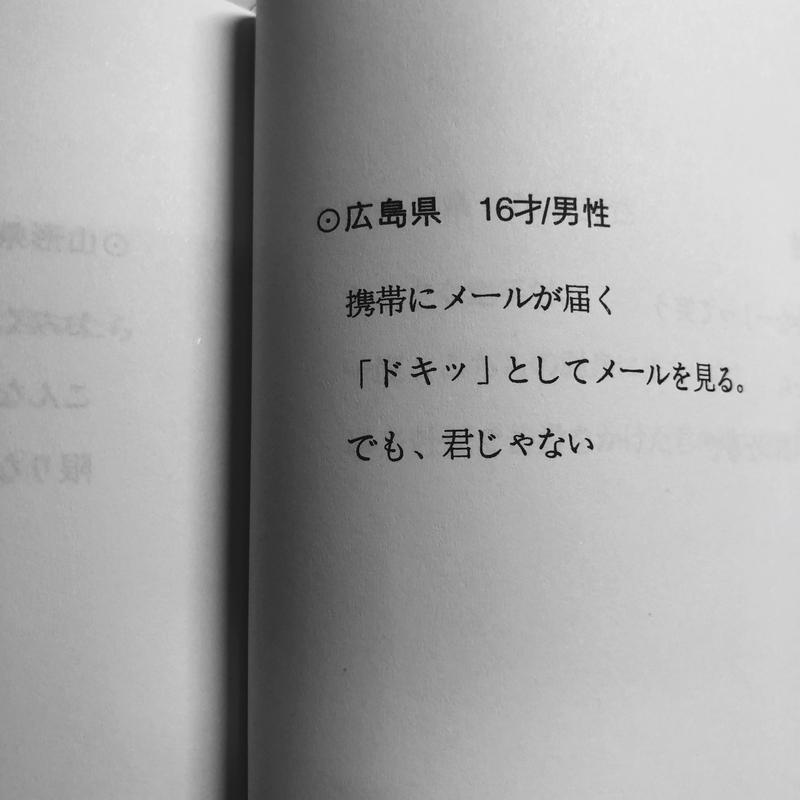 ⊙広島県　16才/男性
携帯にメールが届く
「ドキッ」としてメールを見る。
でも、君じゃない